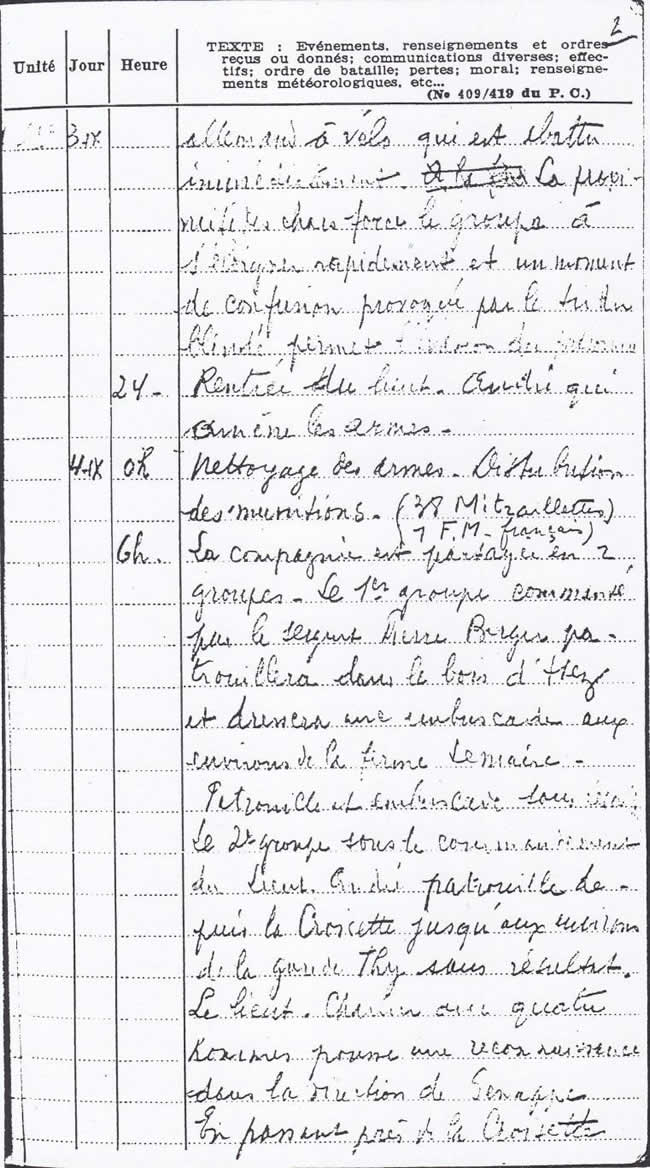 2
Unité Jour Heure
TEXTE : Evénements, renseignements et ordres
reçus ou donnés; communications diverses; effec-
tifs; ordre de bataille; pertes; moral; renseigne-
ments météorologiques, etc...
(No 409/419 du P. C.)
3-IX allemand à vélo qui est abattu
immédiatement. A la La proxi-
mité des chars force le groupe à
s'éloigner rapidement et un moment
de confusion provoqué par le tir du
blindé, permet l'évasion du
24- Rentrée du lieut. André qui
amène les armes-
4-IX 0h Nettoyage des armes- Distribution
des munitions- (38 Mitraillettes)
(1 F.M- français)
6h. La compagnie est partagée en 2
groupes- Le 1er groupe commandé
par le sergent Pierre Berger pa-
trouillera dans le bois d'Hez
et dressera une embuscade aux
environs de la ferme Lemaire-
Patrouille et embuscade sans
Le 2e groupe sous le commandement
du Lieut. André patrouille de-
puis la Croisette jusqu'aux environs
de la gare de Thy sans résultat.
Le lieut. avec quatre
hommes pousse une reconnaissance
dans la direction de Genappe
En passant près de la Croisette